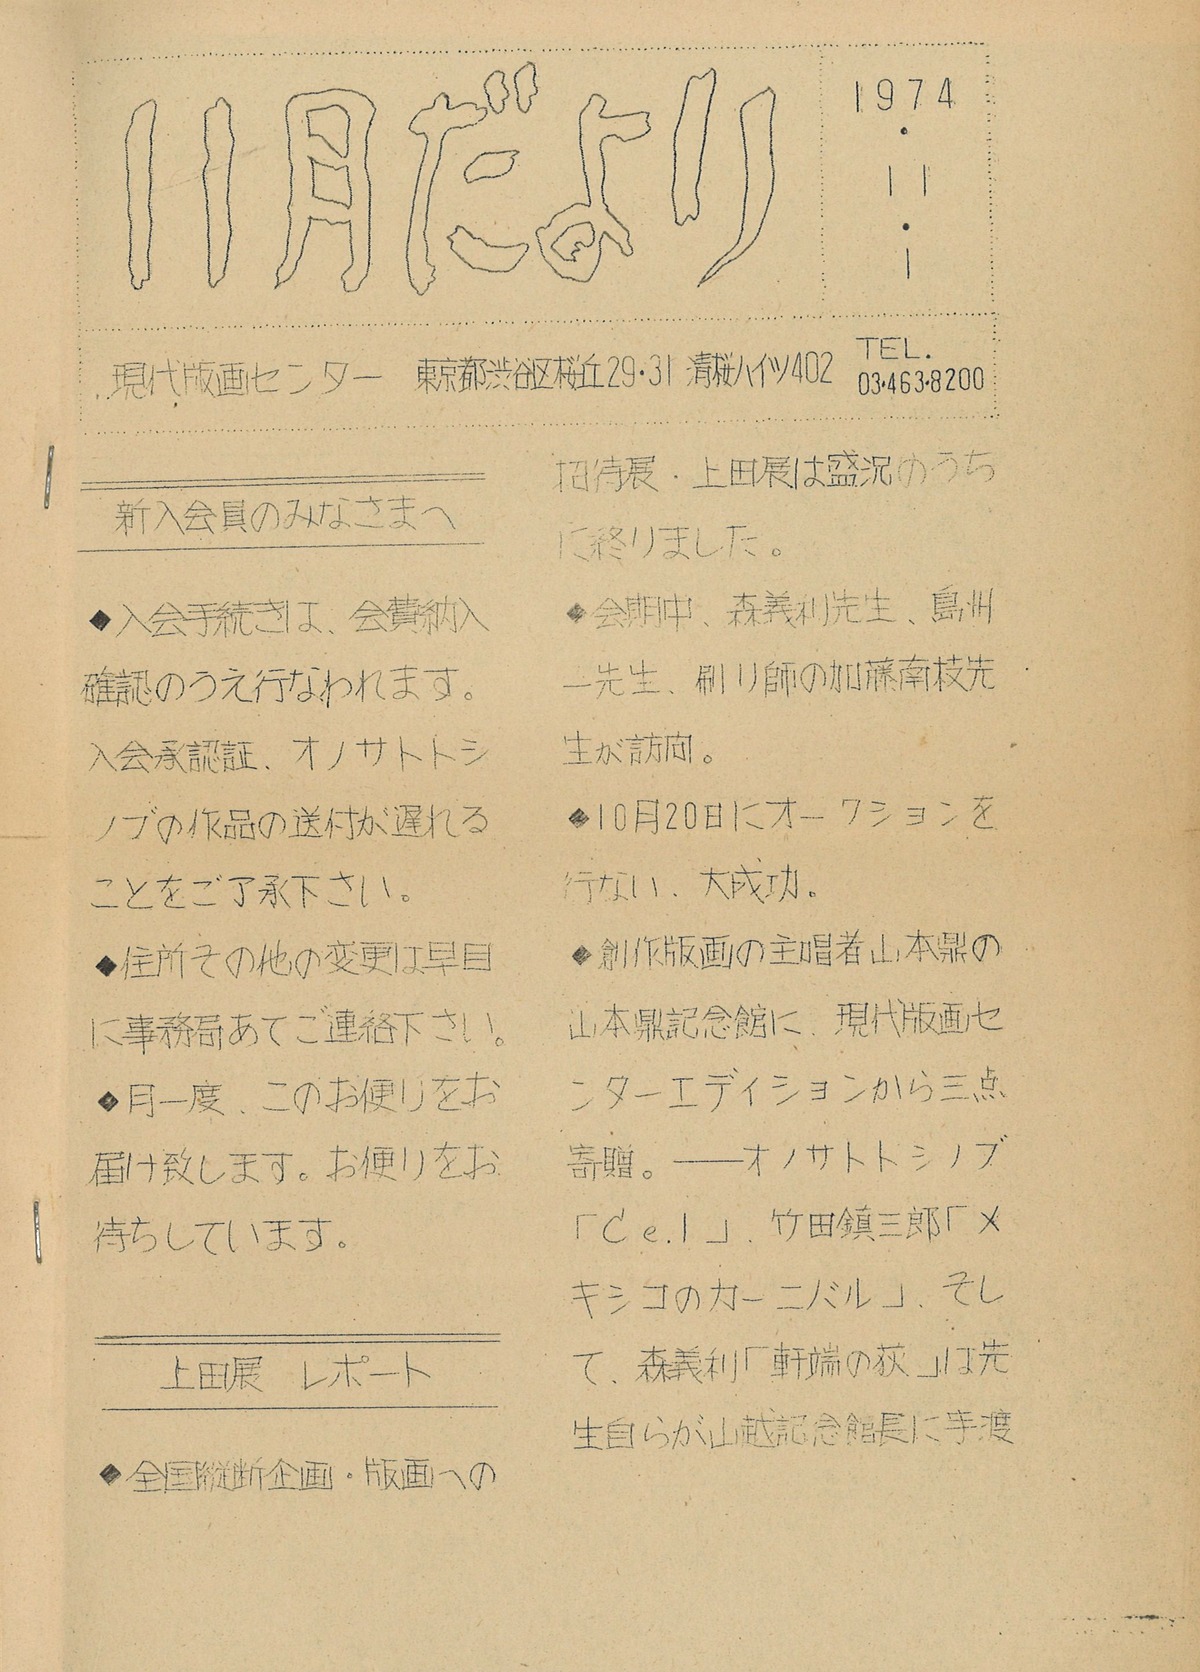 11月だより
1974・11・1
現代版画センター 東京都渋谷区桜丘29・31 清桜ハイツ402 TEL. 03・463・8200
新入会員のみなさまへ
◆入会手続きは、会費納入
確認のうえ行なわれます。
入会承認証、オノサトトシ
ノブの作品の送付が遅れる
ことをご了承下さい。
◆住所その他の変更は早目
に事務局あてご連絡下さい。
◆月一度、このお便りをお
届け致します。お便りをお
待ちしています。
上田展 レポート
◆全国縦断企画・版画への
招待展・上田展は盛況のうち
に終りました。
◆会期中、森義利先生、島州
一先生、刷り師の加藤南枝先
生が訪問。
◆10月20日にオークションを
行ない、大成功。
◆創作版画の主唱者山本鼎の
山本鼎記念館に、現代版画セ
ンターエディションから三点
寄贈。――オノサトトシノブ
「Ce.1」、竹田鎮三郎「メ
キシコのカーニバル」、そし
て、森義利「軒端の荻」は先
生自らが山越記念館長に手渡